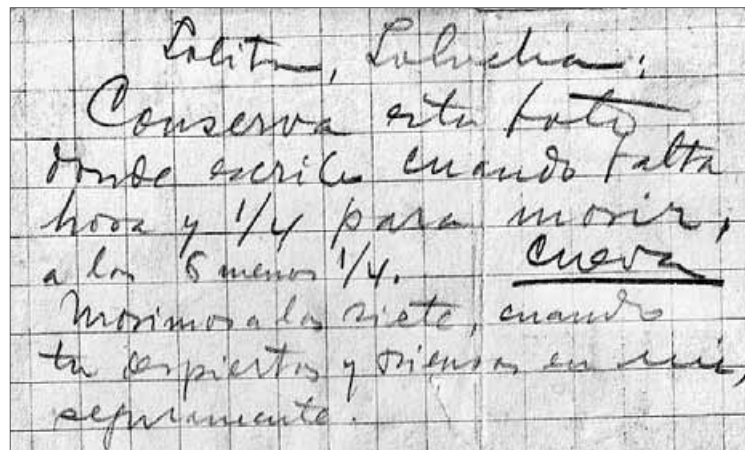 Lolita, Loluchia:
Conserva esta foto
donde escribo cuando falta
hora y 1/4 para morir,
a las 6 menos 1/4. Cueva
Morimos a las siete, cuando
tu despiertas y piensas en mi,
seguramente.